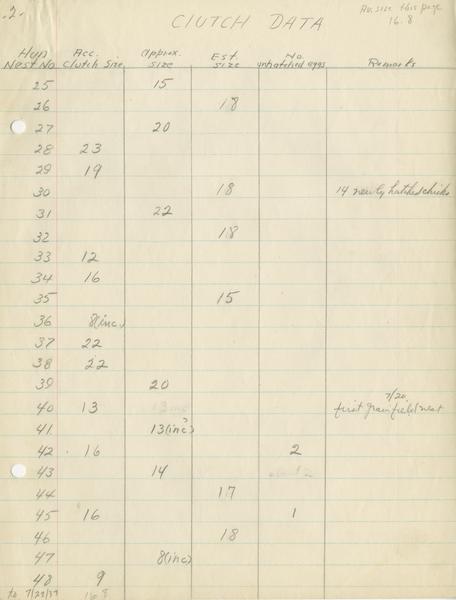 .2.
CLUTCH DATA
Av. size this page
16.8
Hun Nest No. Acc. Clutch Size Approx. size Est size No. unhatched eggs Remarks
25 15
26 18
27 20
28 23
29 19
30 18 14 newly hatched chicks
31 22
32 18
33 12
34 16
35 15
36 8(inc.)
37 22
38 22
39 20
7/20
40 13 first grainfield nest
41 13(inc)
42 16 2
43 14
44 17
45 16 1
46 18
47 8(inc)
48 9
to 7/27/37 16.8